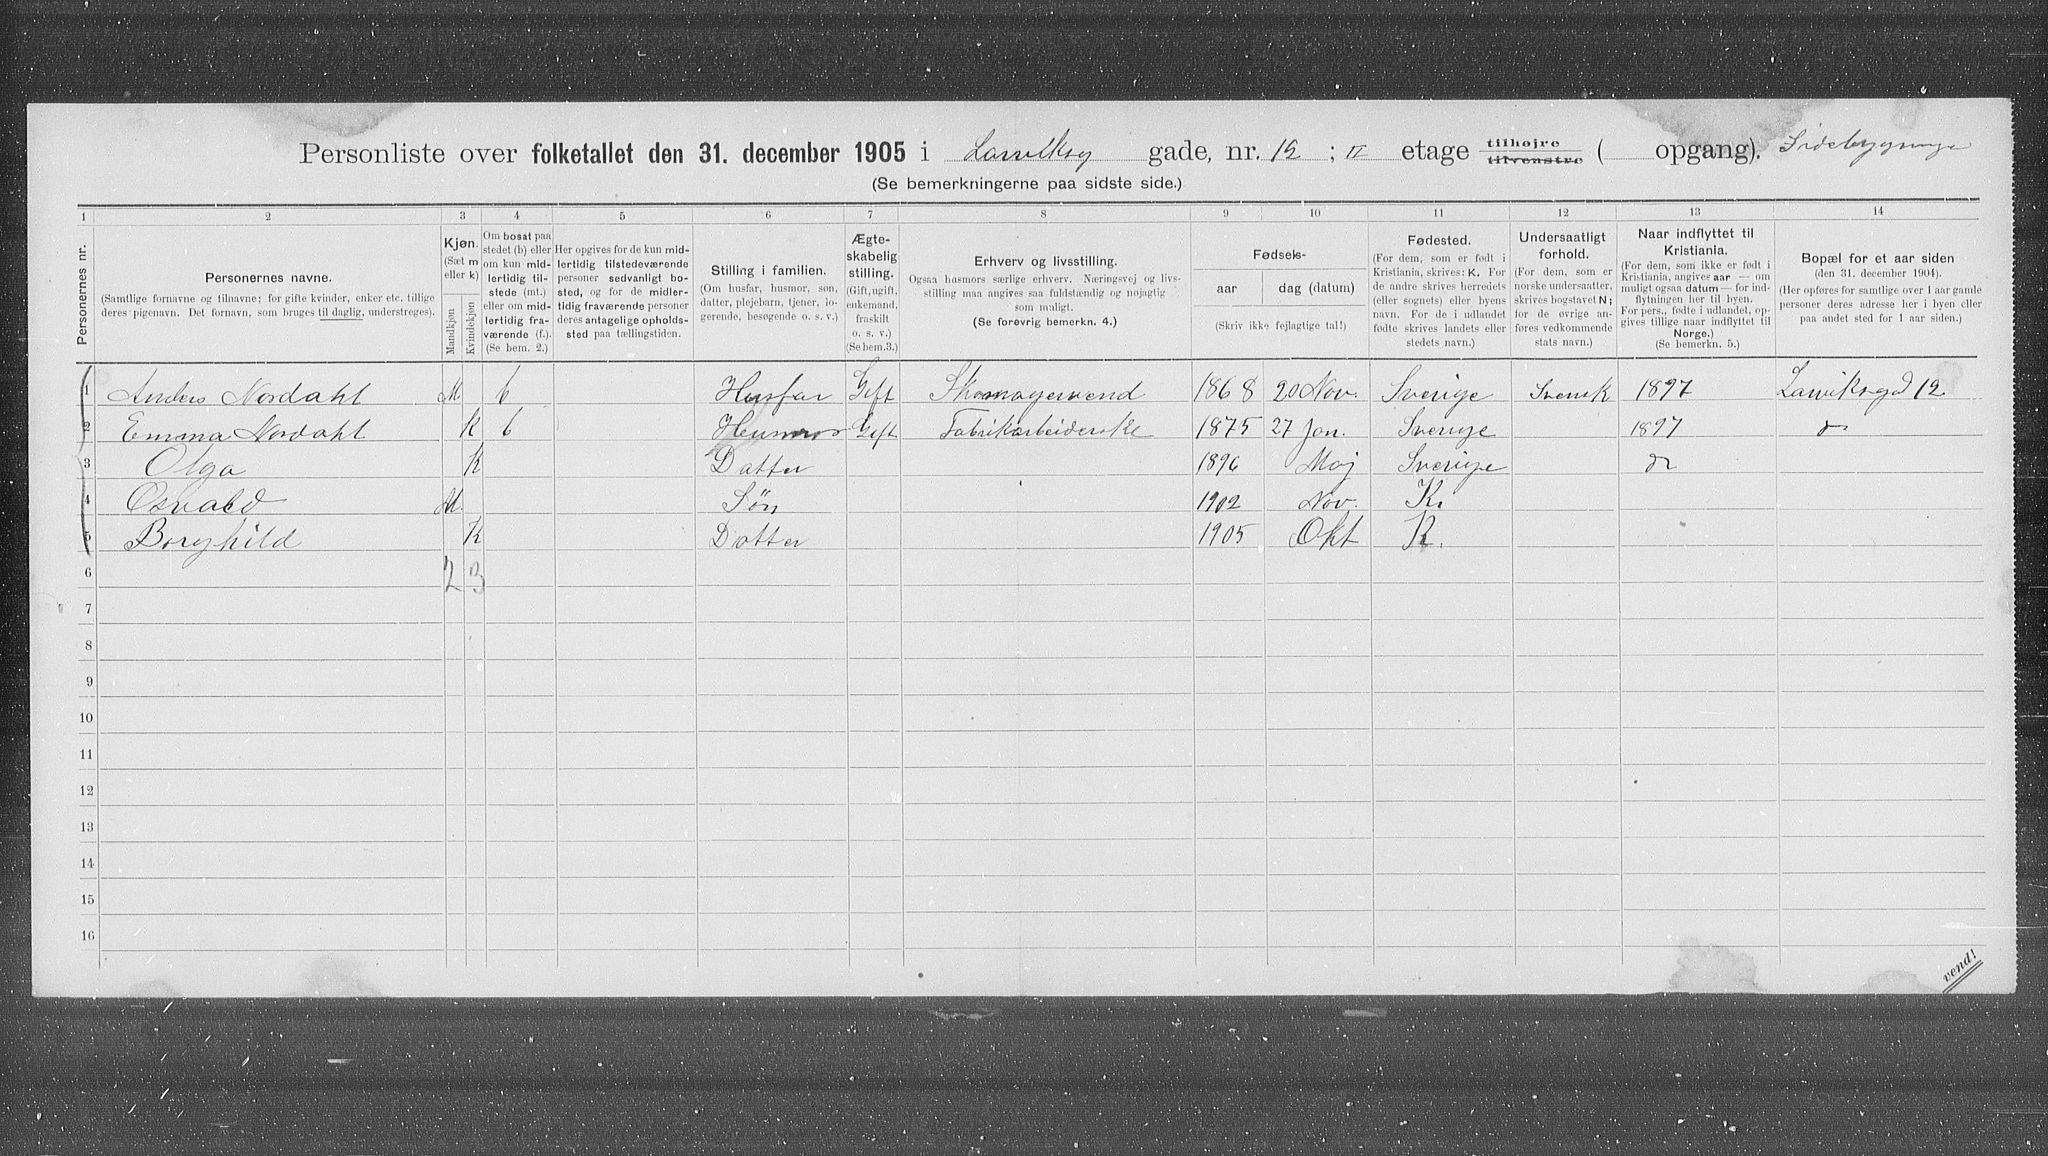 Personliste over folketallet den 31. december 1905 i Larviksg gade, nr. 12 ; II etage tilhøjre tilvenstre ( opgang). Sidebygning
(Se bemerkningerne paa sidste side.)
1 2 3 4 5 6 7 8 9 10 11 12 13 14
Personernes nr.
Personernes navne.
(Samtlige fornavne og tilnavne; for gifte kvinder, enker etc. tillige
deres pigenavn. Det fornavn, som bruges til daglig, understreges).
Kjøn.
(Sæt m
eller k)
Mandkjøn
Kvindekjøn
Om bosat paa
stedet (b) eller
om kun mid-
lertidig til-
stede (mt.)
eller om mid-
lertidig fra-
værende (f.).
(Se bem. 2.)
Her opgives for de kun mid-
lertidig tilstedeværende
personer sedvanligt bo-
sted, og for de midler-
tidig fraværende personer
deres antagelige opholds-
sted paa tællingstiden.
Stilling i familien.
(Om husfar, husmor, søn,
datter, plejebarn, tjener, lo-
gerende, besøgende o. s. v.)
Ægte-
skabelig
stilling.
(Gift, ugift,
enkemand,
fraskilt
o. s. v.)
(Se bem.3.)
Erhverv og livsstilling.
Ogsaa hasmors særlige erhverv. Næringsvej og livs-
stilling maa angives saa fuldstændig og nøjagtig
som maligt.
(Se forøvrig bemerkn. 4.)
Fødsels-
aar dag (datum)
(Skriv ikke fejlagtige tal!)
Fødested.
(For dem, som er født i
Kristiania, skrives: K. For
de andre skrives herredets
(eller sognets) eller byens
navn. For de i udlandet
fødte skrives landets eller
stedets navn.)
Undersaatligt
forhold.
(For dem, som er
norske undersaatter,
skrives bogstavet N;
for de øvrige an-
føres vedkommende
stats navn.)
Naar indflyttet til
Kristiania.
(For dem, som ikke er født i
Kristiania, angives aar — om
muligt ogsaa datum — for ind-
flytningen her til byen.
For pers., fødte i udlandet, op-
gives tillige naar indflyttet til
Norge.)
(Se bemerkn. 5.)
Bopæl for et aar siden
(den 31. december 1904).
(Her opføres for samtlige over 1 aar gamle
personer deres adresse her i byen eller
paa andet sted for 1 aar siden.)
1 Anders Nordahl M b Husfar Gift Skomagersvend 1868 20 Nov. Sverige Svensk 1897 Larviksgd 12
2 Emma Nordahl K b Husmor Gift Fabrikarbeiderske 1875 27 Jan. Sverige 1897 do
3 Olga K Datter 1896 Maj Sverige do
4 Osvald M Søn 1902 Nov. K.
5 Borghild K Datter 1905 Okt K.
6 2 3
7
8
9
10
11
12
13
14
15
16
vend!